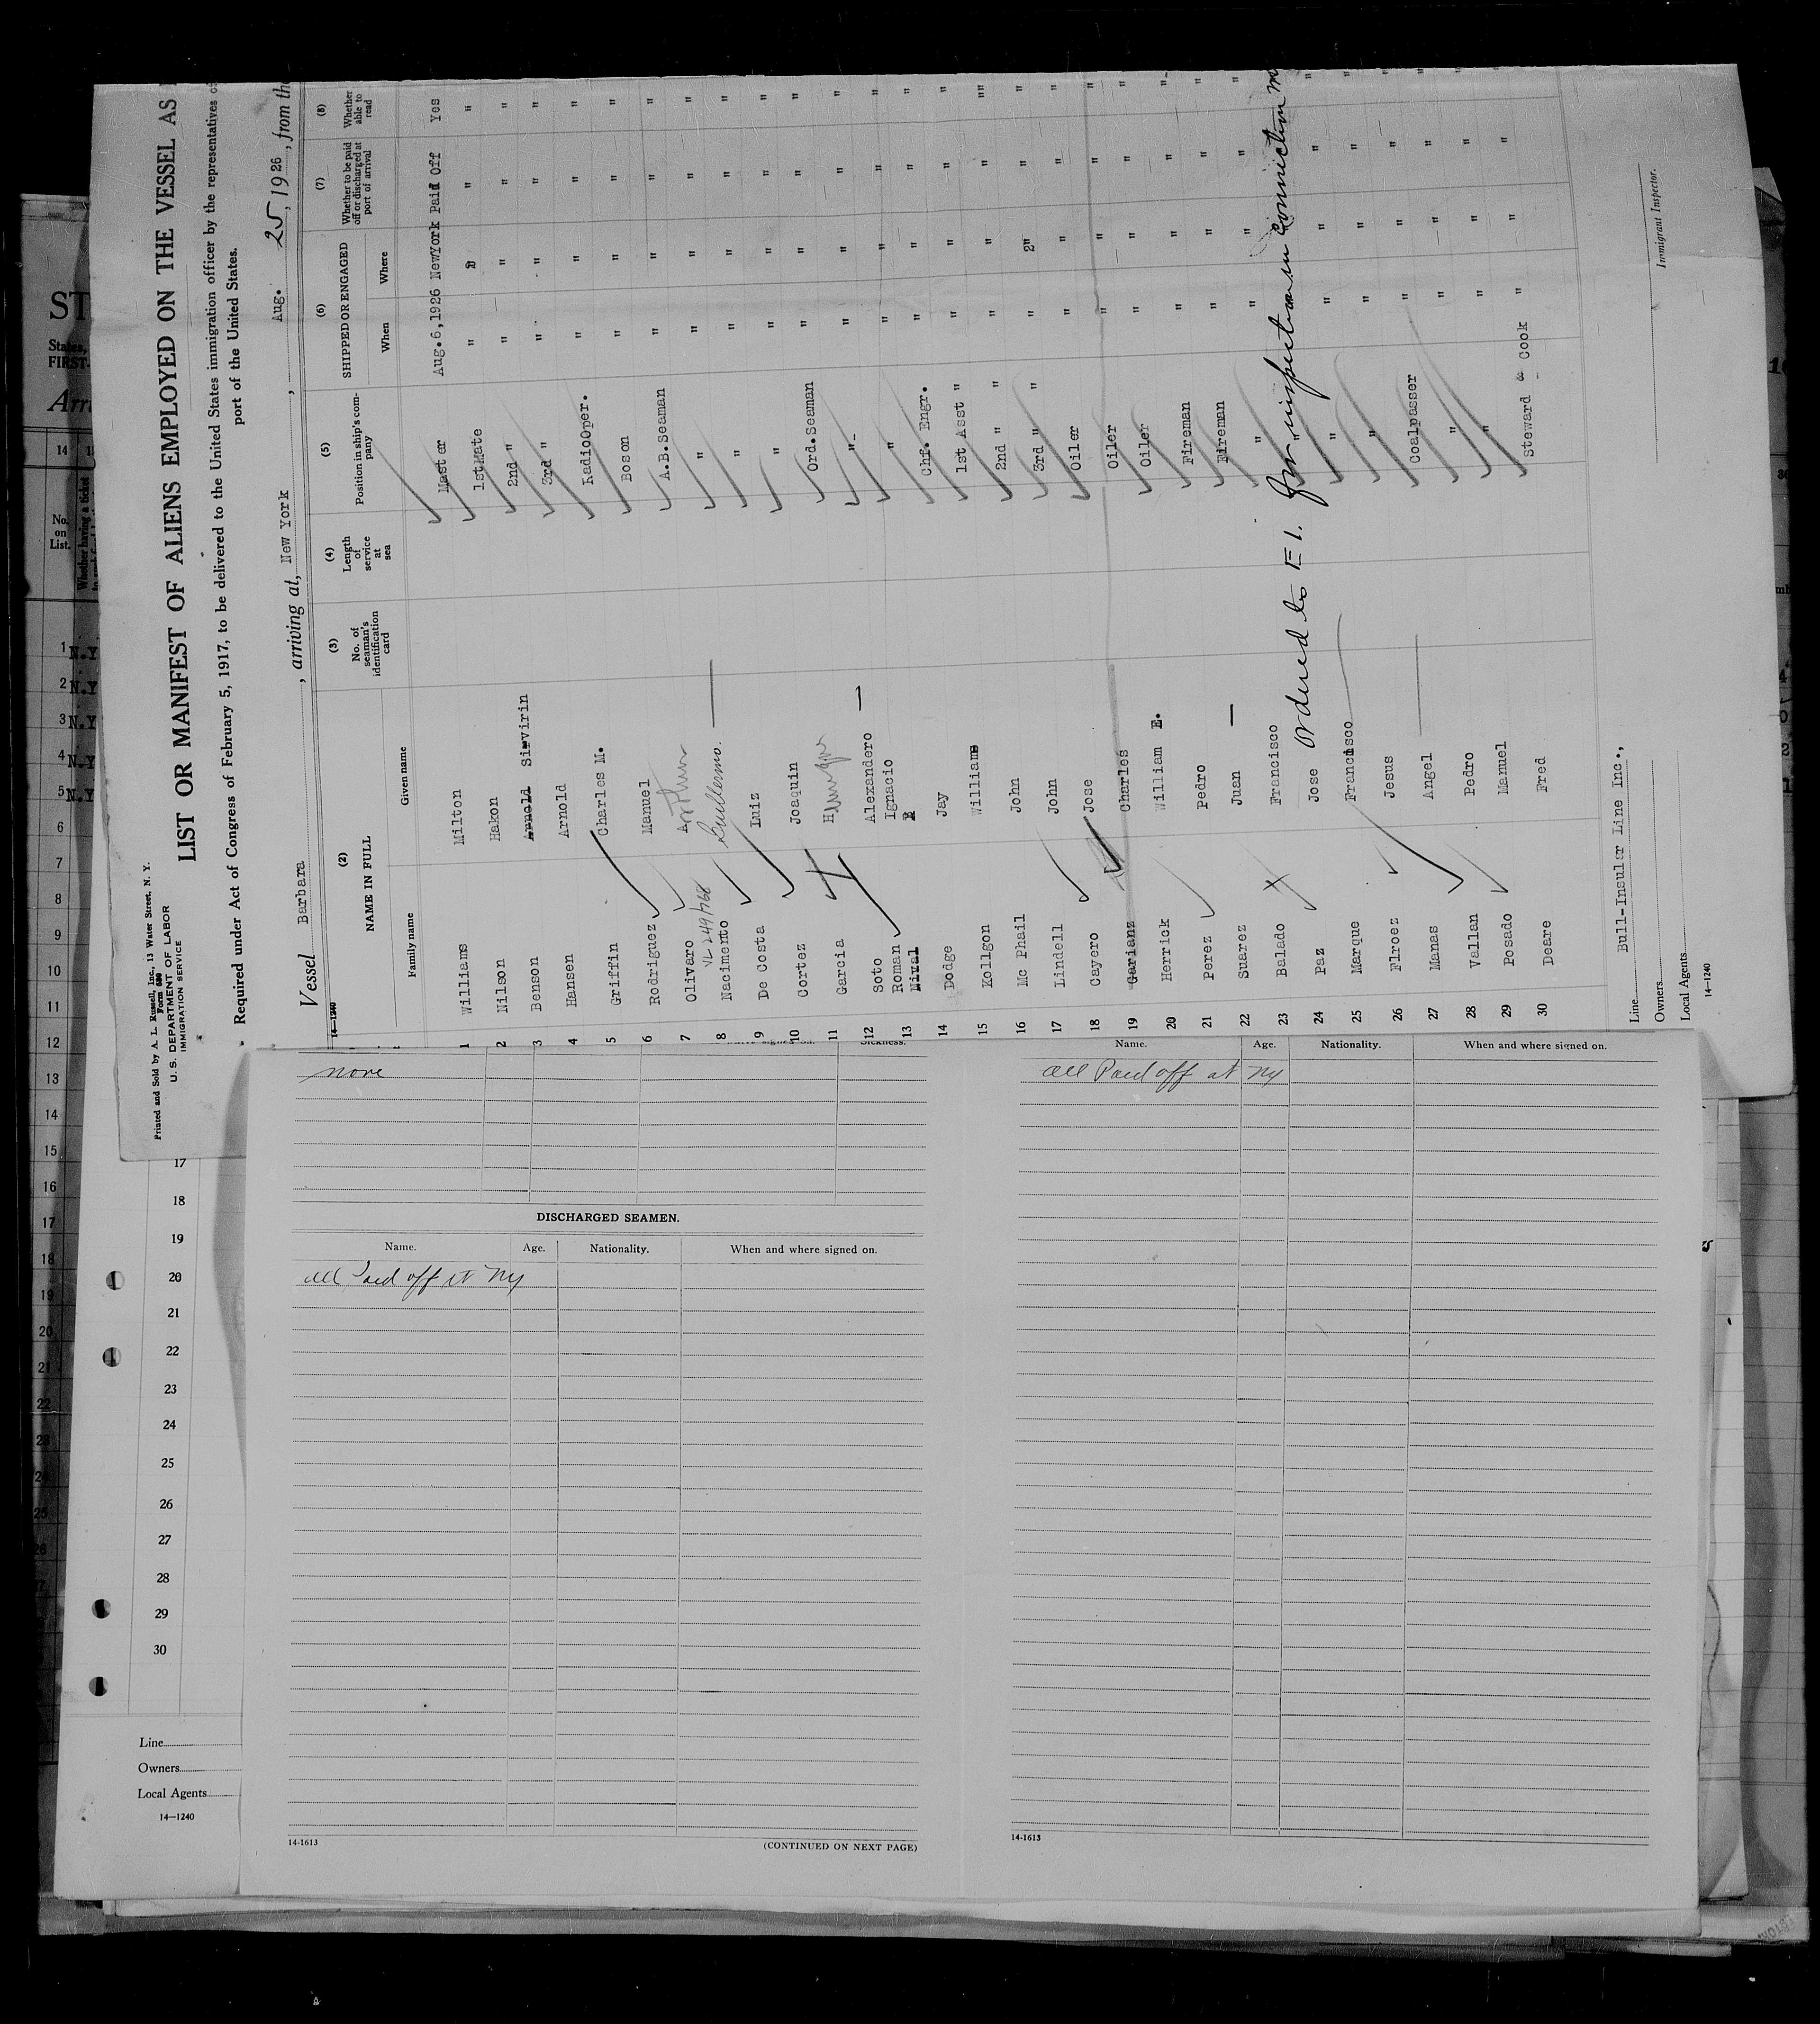 Printed and Sold by A. L. Russell, Inc., 13 Water Street, N. Y.
Form 680
U. S. DEPARTMENT OF LABOR
IMMIGRATION SERVICE
LIST OR MANIFEST OF ALIENS EMPLOYED ON THE VESSEL AS
Required under Act of Congress of February 5, 1917, to be delivered to the United States immigration officer by the representatives of
port of the United States.
Vessel Barbara, arriving at, New York, Aug. 25, 1926, from th
14-1240
(2) NAME IN FULL
Family name Given name
(3) No. of seaman's identification card
(4) Length of service at sea
(5) Position in ship's company
(6) SHIPPED OR ENGAGED
When Where
(7) Whether to be paid off or discharged at port of arrival
(8) Whether able to read
1 Williams Milton Master Aug.6,1926 NewYork Paid Off Yes
2 Nilson Hakon 1stMate " " " "
3 Benson Arnold Sirvirin 2nd " " " " "
4 Hansen Arnold 3rd " " " " "
5 Griffin Charles M. RadioOper. " " " "
6 Rodriguez Manuel Boson " " " "
7 Olivaro Arthur A.B.Seaman " " " "
8 Nacimento Guillermo. " " " " "
9 De Costa Luiz " " " " "
10 Cortez Joaquin " " " " "
11 Garcia Ord.Seaman " " " "
12 Soto Alexandero " " " " "
13 Roman Ignacio " " " " "
Miual
14 Dodge Jay Chf. Engr. " " " "
15 Kollgon William 1st Asst " " " " "
16 Mc Phail John 2nd " " " " "
17 Lindell John 3rd " " " " "
18 Cayero Jose Oiler " " " "
19 Garianz Charles Oiler " " " "
20 Herrick William E. Oiler " " " "
21 Perez Pedro Fireman " " " "
22 Suarez Juan Fireman " " " "
23 Balado Francisco " " " " "
24 Paz Jose "
25 Marque Francisco " " " "
26 Flroez Jesus " " " "
27 Manas Angel Coalpasser " " "
28 Vallan Pedro " " " "
29 Posado Manuel " " " "
30 Deare Fred Steward & Cook " " "
Ordered to E I. for inspection in connection
Line Bull-Insular Line Inc.,
Owners
Local Agents
14-1240
Immigrant Inspector.
none
DISCHARGED SEAMEN.
Name. Age. Nationality. When and where signed on.
all Paid off at NY
14-1613
(CONTINUED ON NEXT PAGE)
Name. Age. Nationality. When and where signed on.
all Paid off at NY
14-1613
17
18
19
20
21
22
23
24
25
26
27
28
29
30
Line
Owners
Local Agents
14-1240
ST
States,
FIRST-
Arri
14
No. on List.
1 N.Y
2 N.Y
3 N.Y
4 N.Y
5 N.Y
6
7
8
9
10
11
12
13
14
15
16
17
18
19
20
21
22
23
24
25